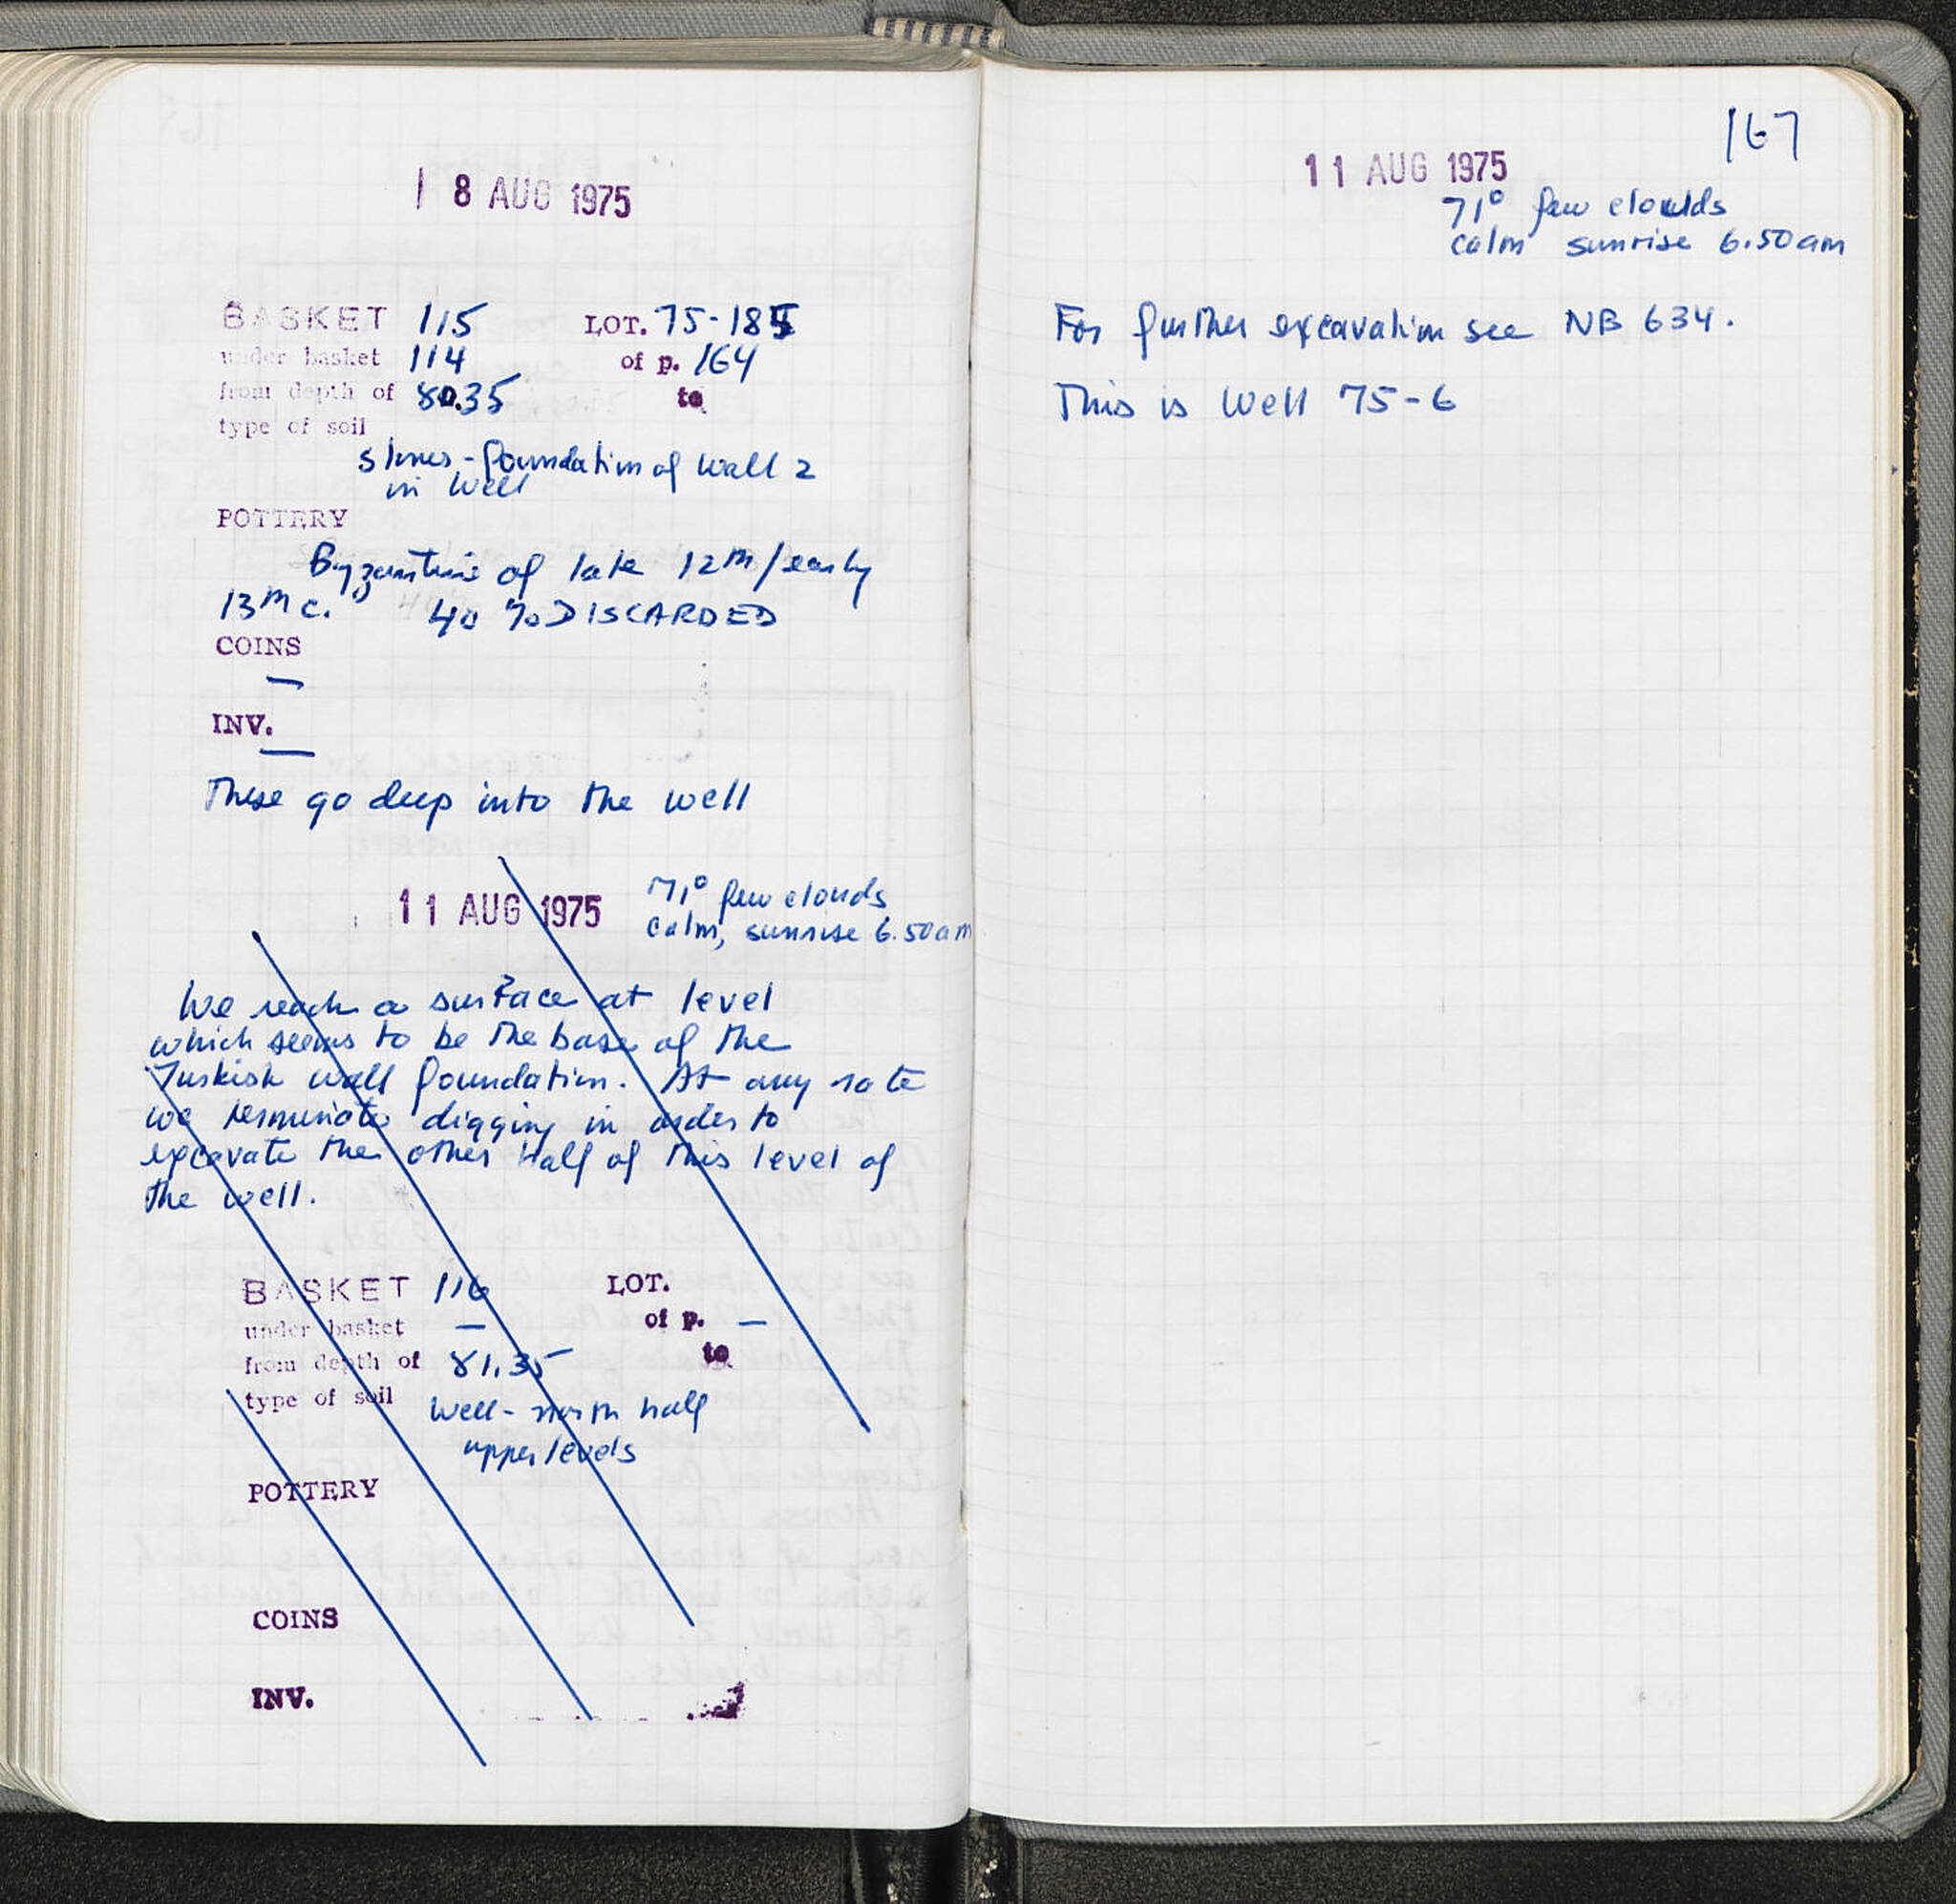 8 AUG 1975
BASKET 115 LOT. 75-185
under basket 114 of p. 164
from depth of 80.35 to
type of soil
stones - foundation of Wall 2
in well
POTTERY
Byzantine of late 12th/early
13th c. 40% DISCARDED
COINS
—
INV.
—
These go deep into the well
11 AUG 1975 71° few clouds
calm, sunrise 6.50am
We reach a surface at level
which seems to be the base of the
Turkish wall foundation. At any rate
we terminate digging in order to
excavate the other half of this level of
the well.
BASKET 116 LOT.
under basket — of p. —
from depth of 81.35 to
type of soil
well - north half
upper levels
POTTERY
COINS
INV.
167
11 AUG 1975
71° few clouds
calm sunrise 6.50am
For further excavation see NB 634.
This is Well 75-6